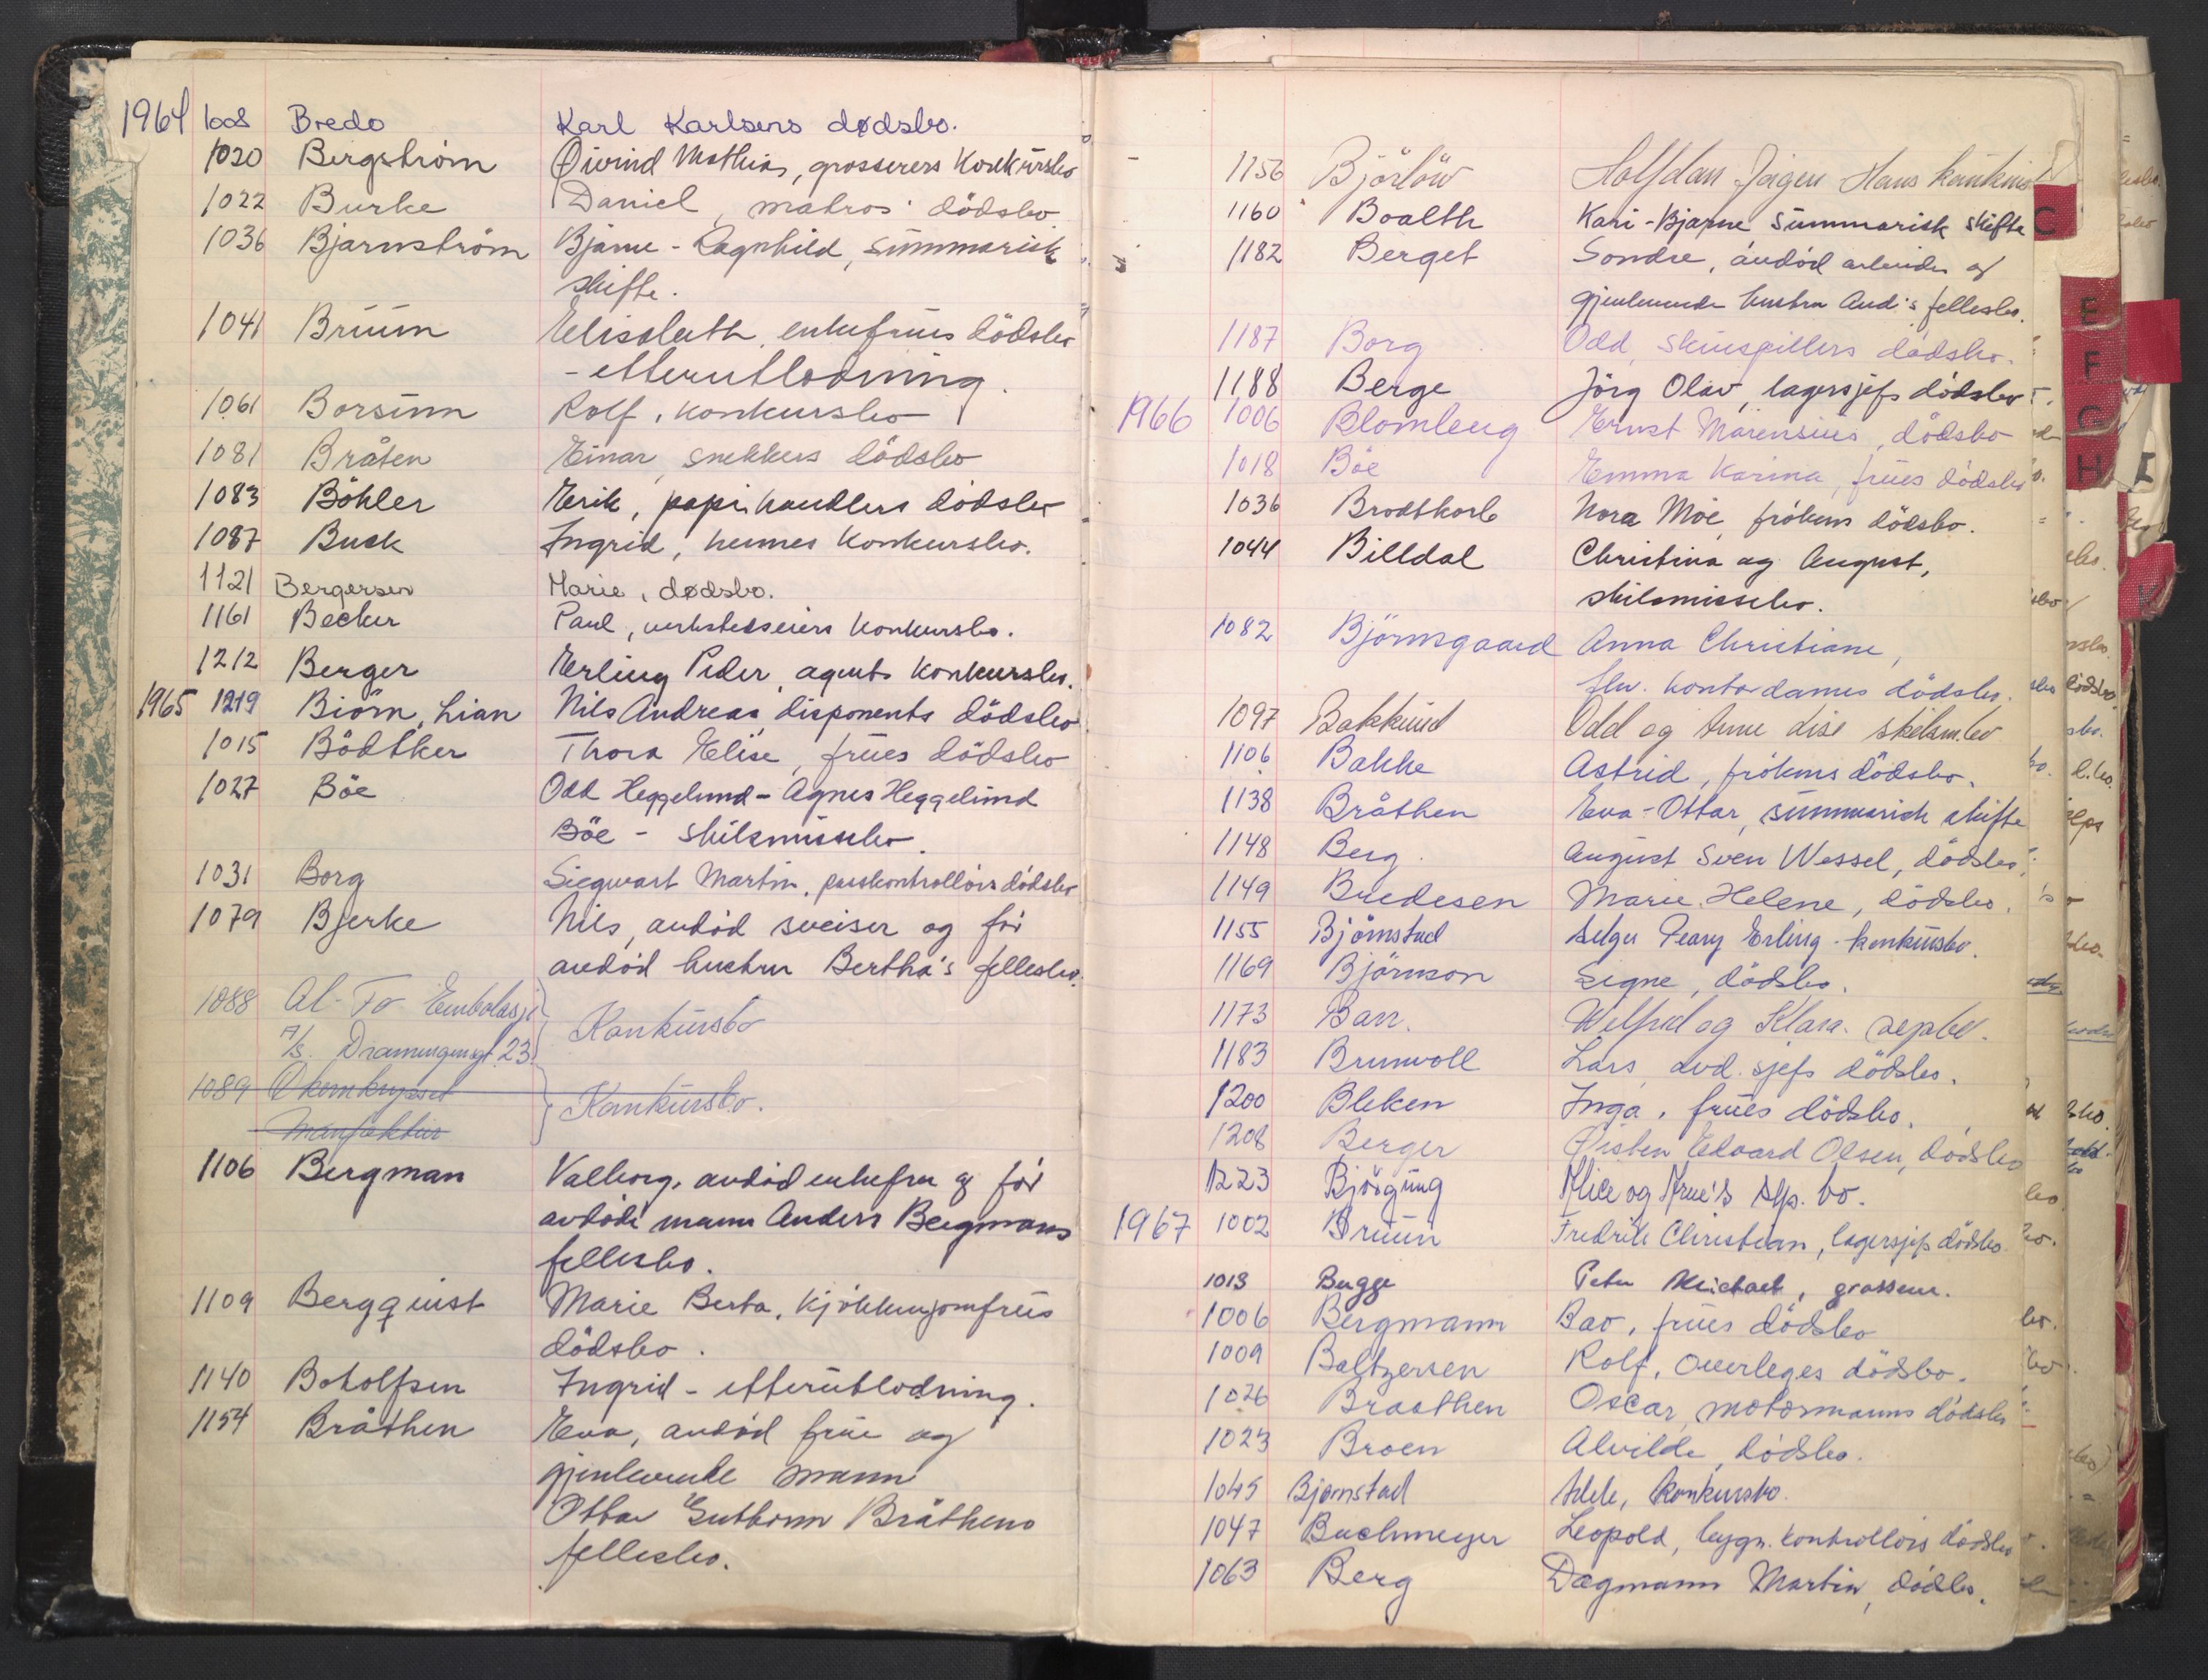 1964 1008 Bredo Karl Karlsens dødsbo.
1020 Bergström Öivind Mathias, grosserers Konkursbo
1022 Burke Daniel, matros' dödsbo
1036 Bjarnström Bjarne - Ragnhild, Summarisk
skifte.
1041 Bruun Elisabeth, enkefrues dödsbo
- etterutlodning.
1061 Borsum Rolf, Konkursbo
1081 Bråten Einar, snekkers dödsbo
1083 Böhler Erik, papirhandlers dödsbo
1087 Buck Ingrid, hennes Konkursbo.
1121 Bergersen Marie, dødsbo.
1161 Becker Paul, verkstedseiers Konkursbo.
1212 Berger Erling Peder, agents Konkursbo.
1965 1219 Biörn, Lian Nils Andreas disponents dödsbo
1015 Bödtker Thora Elise, frues dödsbo
1027 Böe Odd Heggelund - Agnes Heggelund
Böe - skilsmissebo.
1031 Borg Siegwart Martin, passkontrollörs dödsbo
1079 Bjerke Nils, avdöd sveiser og för
avdöd hustru Bertha's fellesbo.
1088 Al-To Embalasje Konkursbo
A/s. Drammensvgt. 23
1089 Økernkrysset Konkursbo.
Manufaktur
1106 Bergman Valborg, avdöd enkefru og för
avdöde mann Anders Bergmans
fellesbo.
1109 Bergquist Marie Berta, Kjökkenjomfrus
dödsbo.
1140 Botolfsen Ingrid - etterutlodning.
1154 Bråthen Eva, avdöd frue og
gjenlevende mann
Ottar Guthorm Bråthens
fellesbo.
1156 Björlöw Halfdan Jørgen Hans konkurs
1160 Boalth Kari - Bjarne Summarisk Skifte
1182 Berget Sondre, avdöd arbeider og
gjenlevende hustru Aud's fellesbo.
1187 Borg Odd, Skuespillers dödsbo.
1188 Berge Jörg Olav, lagersjefs dödsbo
1966 1006 Blomleng Ernst Marensius, dödsbo
1018 Böe Emma Karina, frues dödsbo
1036 Brodtkorb Nora Moe, frökens dödsbo.
1044 Billdal Christina og August,
skilsmissebo.
1082 Björnsgaard Anna Christiane,
fhv. kontordames dödsbo.
1097 Bakkund Odd og Anne Lise skilsm.bo
1106 Bakke Astrid, frökens dödsbo.
1138 Bråthen Eva - Ottar, summarisk skifte
1148 Berg August Sven Wessel, dödsbo.
1149 Bredesen Marie Helene, dödsbo.
1155 Björnstad Selger Peary Erling - konkursbo.
1169 Björnson Signe, dödsbo.
1173 Barr. Wilfred og Klara. sepbo.
1183 Brunvoll Lars, avd. sjefs dödsbo.
1200 Bleken Inga, frues dödsbo.
1208 Berger Øisten Edvard Olsen, dödsbo
1223 Björgung Alice og Arne's sep. bo.
1967 1002 Bruun Fredrik Christian, lagersjefs dödsbo
1013 Bugge Peter Michael, grosserer.
1006 Bergmann Bao, frues dödsbo
1009 Baltzersen Rolf, Overleges dödsbo.
1026 Braathen Oscar, motormanns dödsbo
1023 Broen Alvilde, dödsbo.
1045 Bjørnstad Adele, konkursbo.
1047 Buchmeyer Leopold, bygn. kontrollörs dödsbo
1063 Berg Dagmann Martin, dödsbo.
C
E
F
G
H
I
K